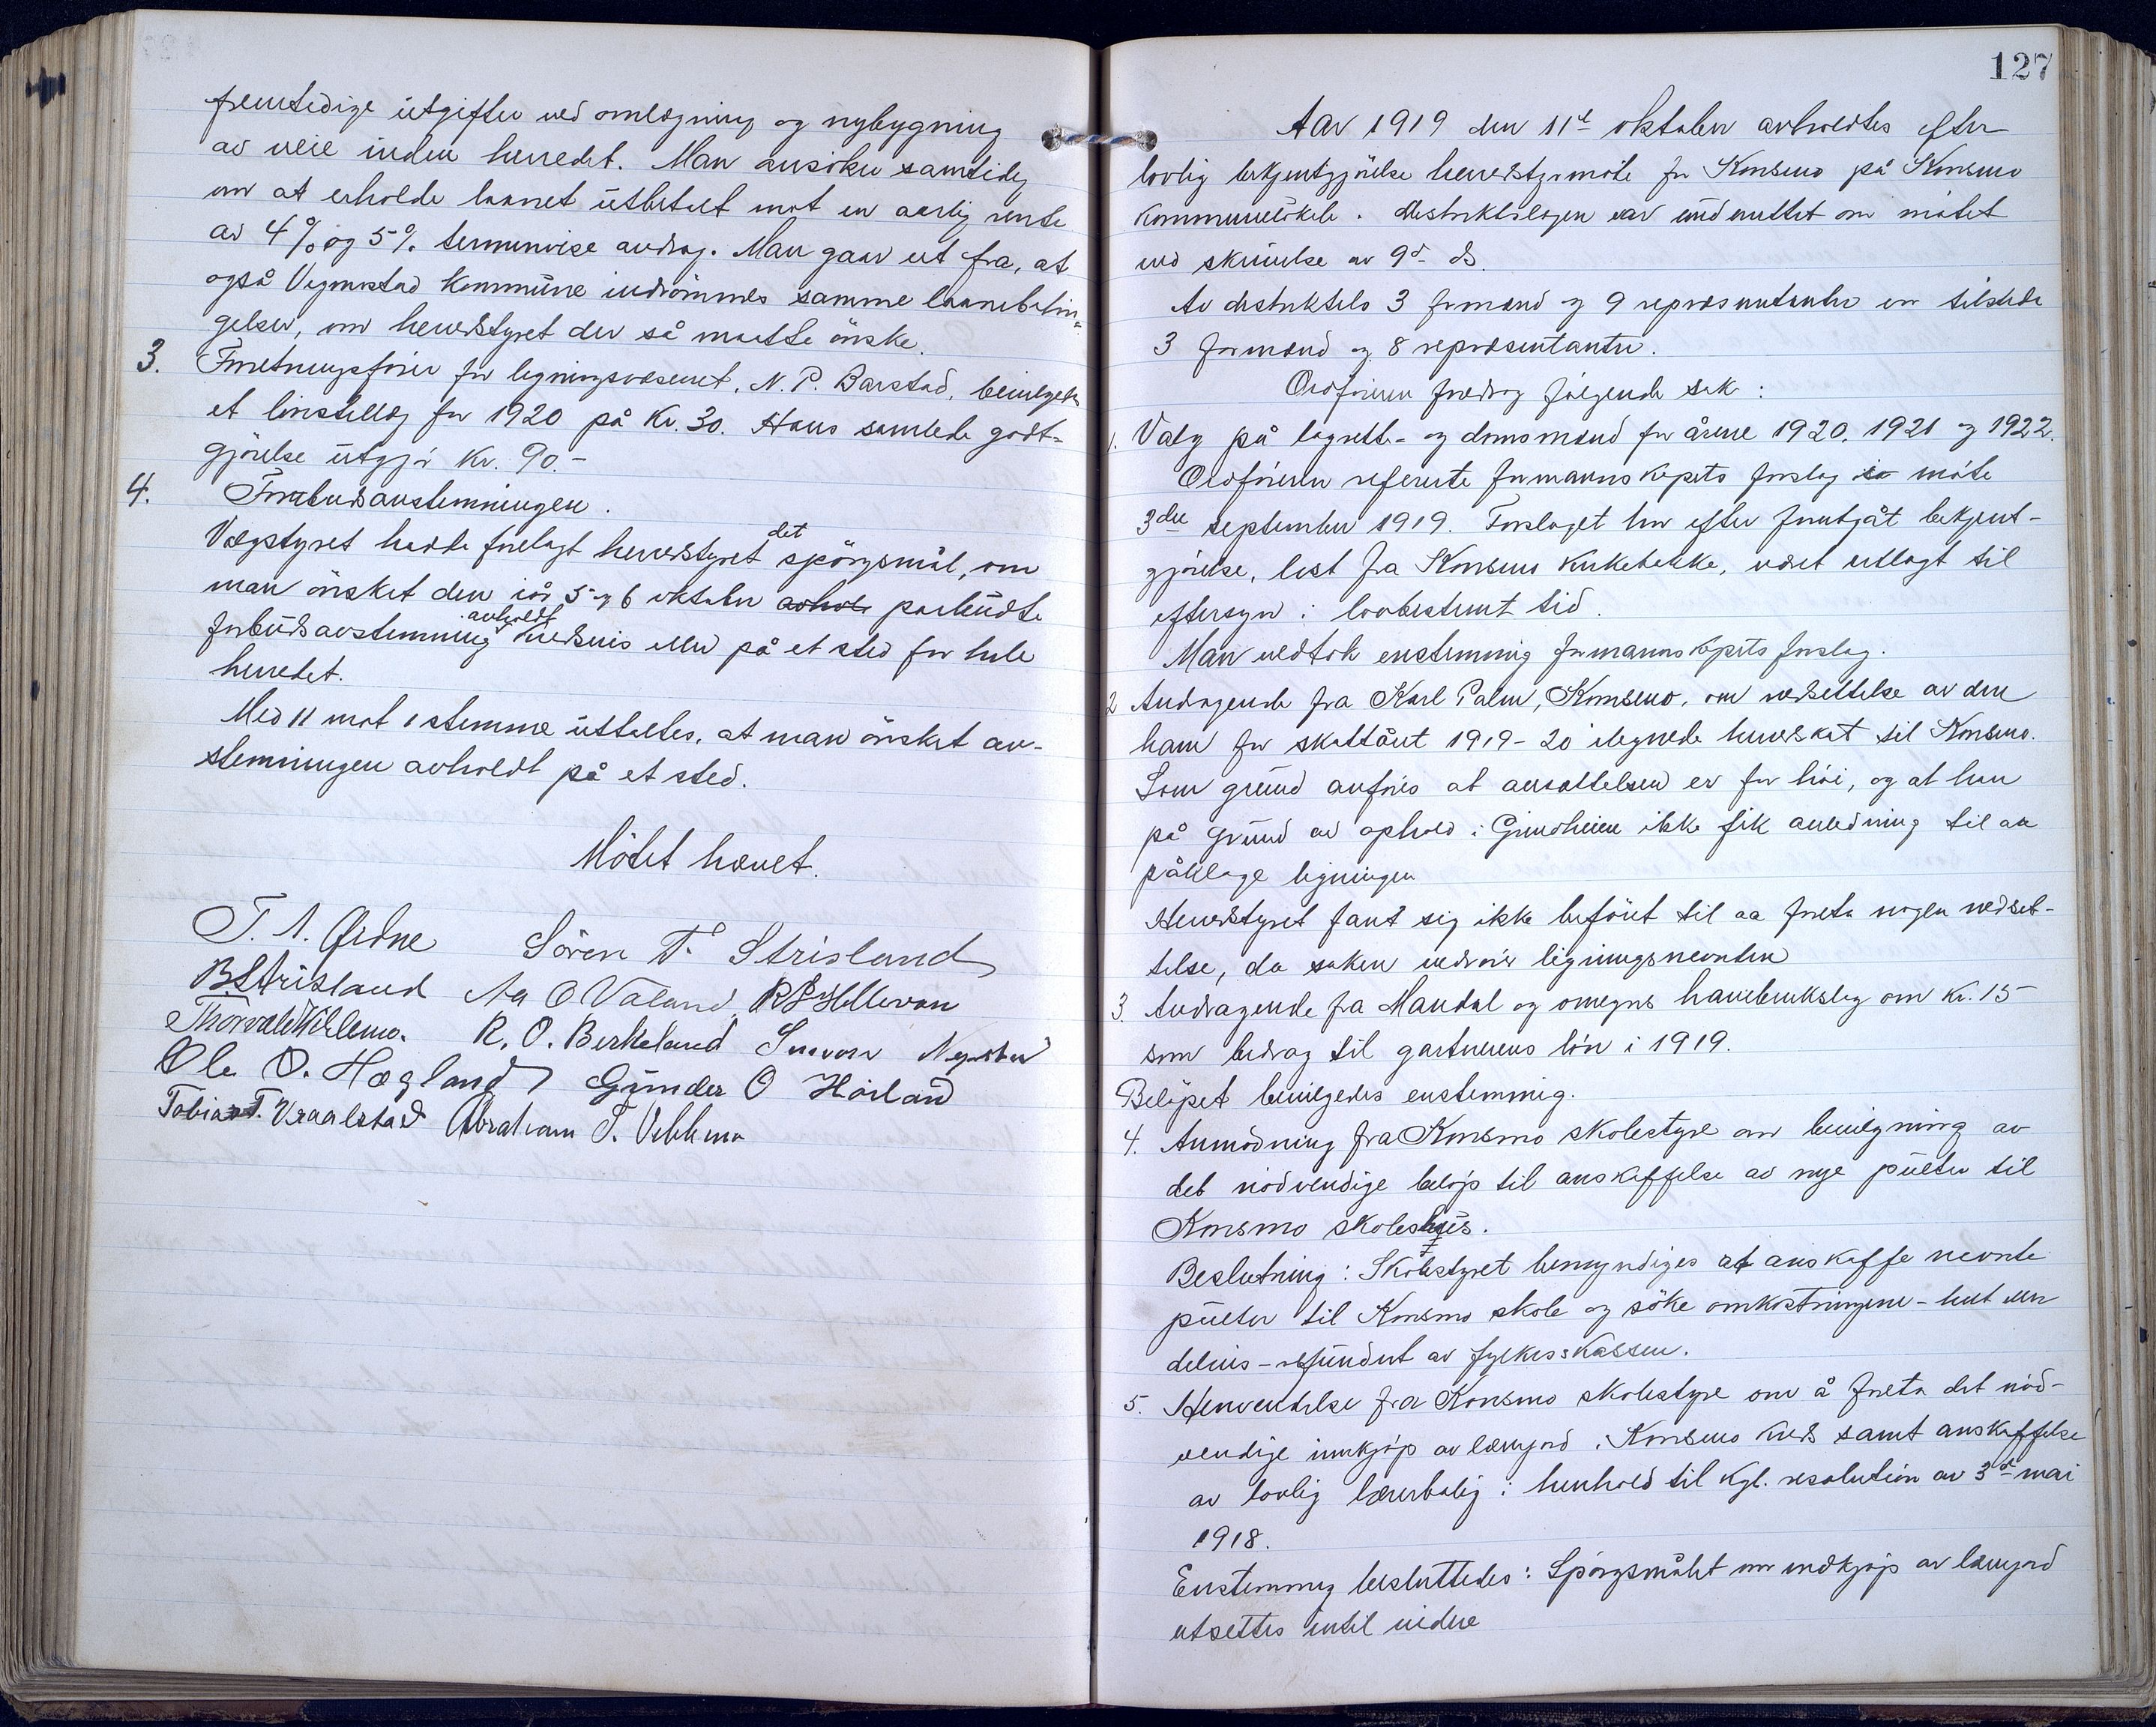 fremtidige utgifter ved omlægning og nybygning
av veie inden herredet. Man ansöker samtidig
om at erholde laanet utbetalt mot en aarlig rente
av 4% og 5% terminvise avdrag. Man gaar ut fra, at
også Vigmostad kommune indrömmes samme laanebetin=
gelser, om herredstyret der så maatte önske.
3. Forretningsförer for ligningsvæsenet, N. P. Barstad, bevilgedes
et lönstillæg for 1920 på kr. 30. Hans samlede godt=
gjörelse utgjör kr. 90.-
4. Forbudsavstemningen.
Valgstyret hadde forelagt herredstyret det spörgsmål, om
man önsket den iår 5 og 6 oktober avhold paabudte
forbudsavstemning avholdt kredsvis eller på et sted for hele
herredet.
Med 11 mot 1 stemme uttaltes, at man önsket av-
stemningen avholdt på et sted.
Mötet hævet.
T. A. Ördne Sören T. Strisland
B Strisland Aa O Valand, R P Hellevan
Thorvald Viblemo. R. O. Berkeland
Ole O. Hægland Gunder O Hörland
Tobias T. Vraalstad Abraham T. Viblemo
127
Aar 1919 den 11te oktober avholdtes efter
lovlig bekjentgjörelse herredstyremöte for Konsmo på Konsmo
kommunelokale. Distriktslægen var underrettet om mötet
ved skrivelse av 9d ds.
Av distriktets 3 formænd og 9 representanter var tilstede
3 formænd og 8 representanter.
Ordföreren foredrog fölgende sak:
1. Valg på lagrette- og domsmænd for årene 1920, 1921 og 1922.
Ordföreren refererte formannskapets forslag i möte
3die september 1919. Forslaget har efter forutgåt bekjent-
gjörelse, læst fra Konsmo kirkebakke, været utlagt til
eftersyn i lovbestemt tid.
Man vedtok enstemmig formannskapets forslag.
2 Andragende fra Karl Palm, Konsmo, om nedsettelse av den
ham for skattåret 1919-20 ilignede herredskat til Konsmo.
Som grund anföres at ansættelsen er for höi, og at han
på grund av ophold i Grindheim ikke fik anledning til aa
påklage ligningen
Herredstyret fant sig ikke beföiet til aa foreta nogen nedset-
telse, da saken vedrör ligningsnevnden
3. Andragende fra Mandal og omegns havebrukslag om kr. 15
som bidrag til gartnerens lön i 1919.
Belöpet bevilgedes enstemmig.
4. Anmodning fra Konsmo skolestyre om bevilgning av
det nödvendige belöp til anskaffelse av nye pulter til
Konsmo skoleshus.
Beslutning: Skolestyret bemyndiges at anskaffe nevnte
pulter til Konsmo skole og söke omkostningene - helt eller
delvis - refundert av fylkesskassen.
5. Henvendelse fra Konsmo skolestyre om å foreta det nöd-
vendige innkjöp av lærerjord i Konsmo kreds samt anskaffelse
av lovlig lærerbolig i henhold til kgl. resolution av 3d mai
1918.
Enstemmig besluttedes: Spörgsmålet om indkjöp av lærerjord
utsettes intil videre